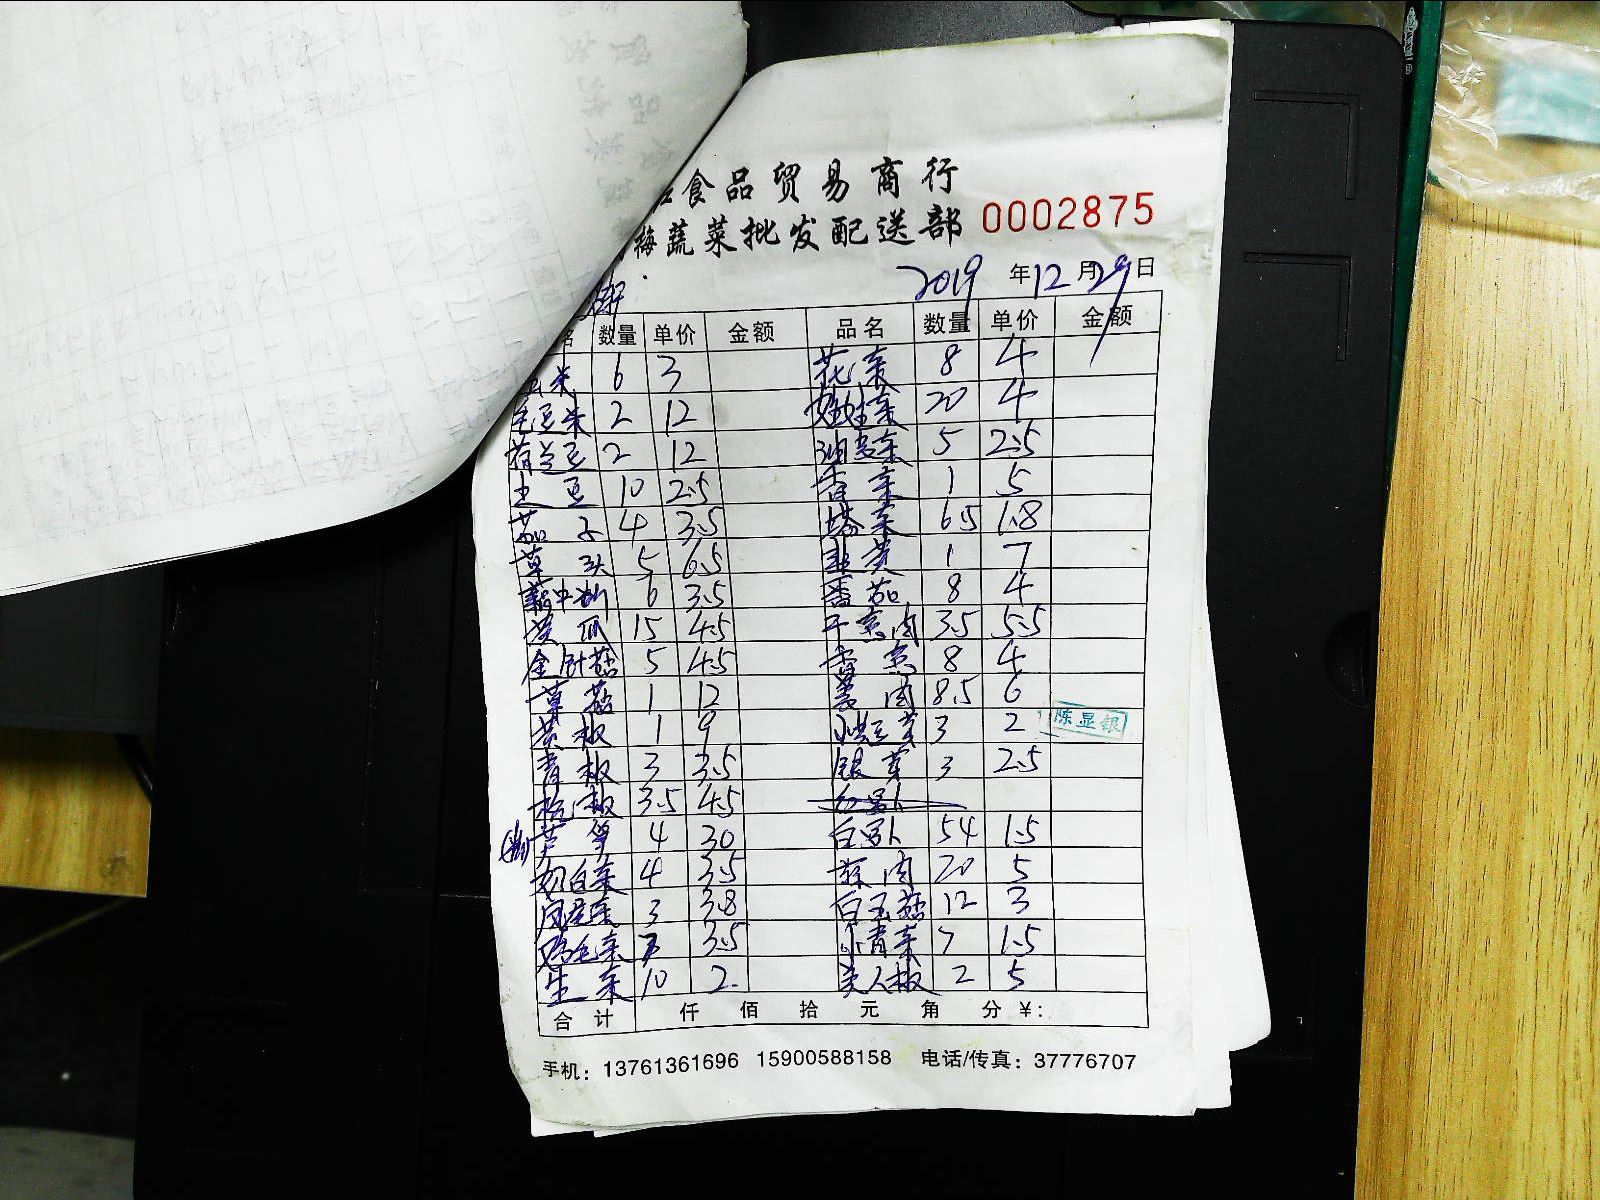 食品贸易商行
梅蔬菜批发配送部 0002875
2019年12月29日
名 数量 单价 金额 品名 数量 单价 金额
玉米 6 3 花菜 8 4
毛豆米 2 12 娃娃菜 20 4
荷兰豆 2 12 油麦菜 5 2.5
土豆 10 2.5 香菜 1 5
茄子 4 3.5 塔菜 6.5 1.8
草头 5 6.5 韭黄 1 7
6 3.5 番茄 8 4
黄瓜 15 4.5 3.5 5.5
金针菇 5 4.5 8 4
草菇 1 12 姜肉 8.5 6
黄椒 1 9 小黄豆芽 3 2 陈显银
青椒 3 3.5 银芽 3 2.5
杭椒 3.5 4.5 红萝卜
芦笋 4 30 白萝卜 54 1.5
奶白菜 4 3.5 蒜肉 20 5
3 3.8 白玉菇 12 3
鸡毛菜 7 3.5 小青菜 7 1.5
生菜 10 2. 美人椒 2 5
合计 仟 佰 拾 元 角 分 ¥:
手机: 13761361696 15900588158 电话/传真: 37776707